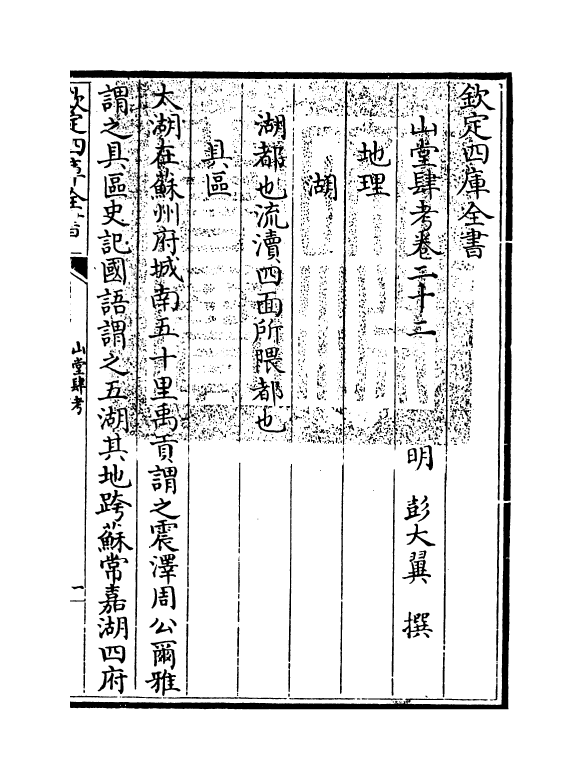 欽定四庫全書
山堂肆考卷二十二　明　彭大翼　撰
地理
湖
湖都也流瀆四面所隈都也
具區
太湖在蘇州府城南五十里禹貢謂之震澤周公爾雅
謂之具區史記國語謂之五湖其地跨蘇常嘉湖四府
欽定四庫全書
山堂肆考
一